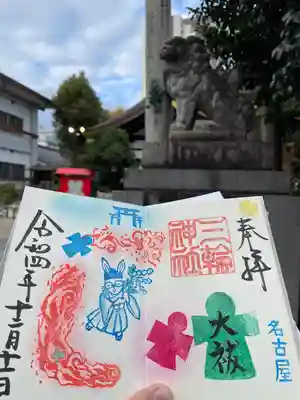 奉拝
三輪
神社
大祓
名古屋
令和四年十二月十一日